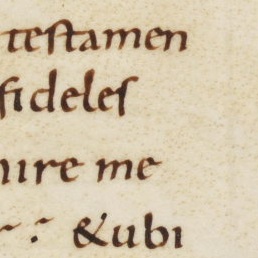 testamen
fideles
nire me
&ubi